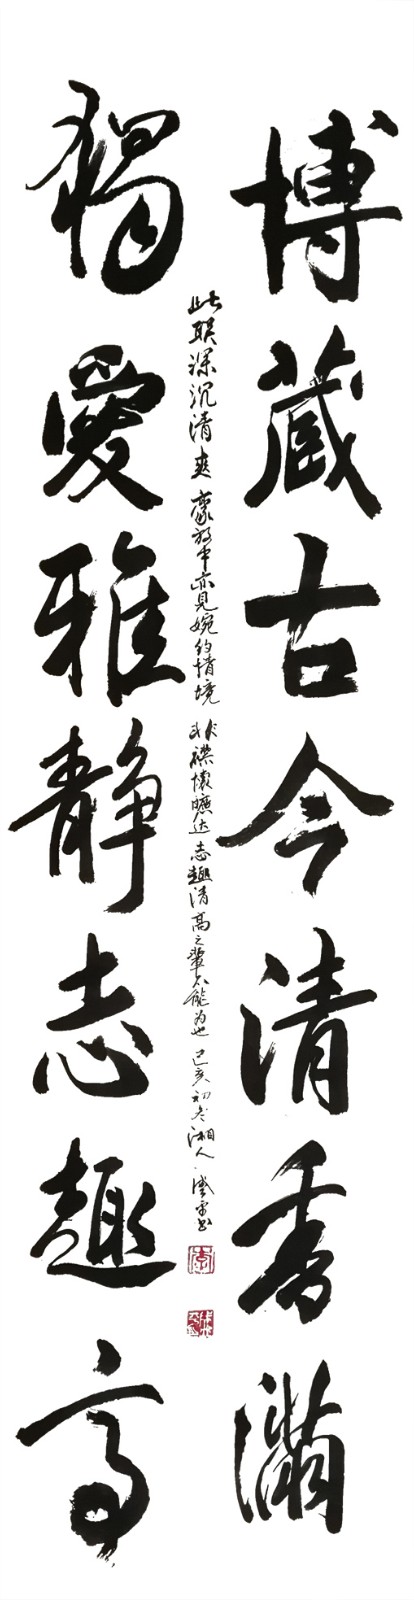 博藏古今清香满
独爱雅静志趣高
此联深沉清爽豪放中亦见婉约情境非磔怀旷达志趣清高之辈不能为也己亥初冬湘人